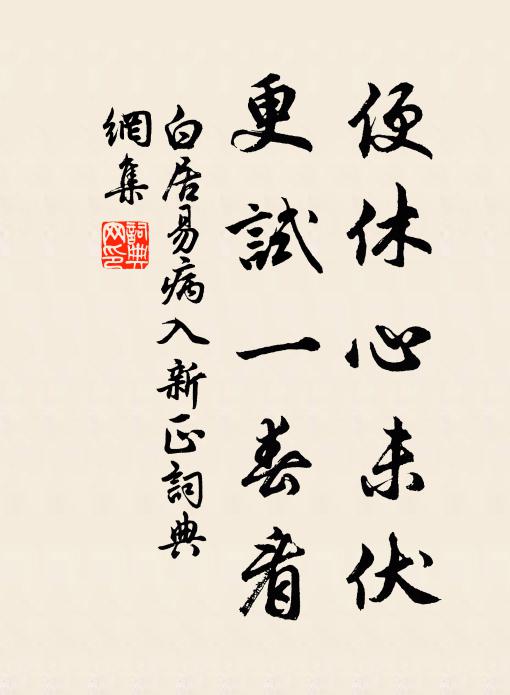 便休心未伏
更試一春看
白居易病入新正詞典
網集
詞典
网印